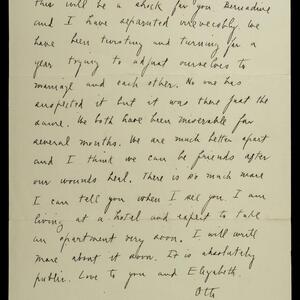 this will be a shock for you. Bernadine
and I have separated irrevocably. We
have been twisting and turning for a
year trying to adjust ourselves to
marriage and each other. No one has
suspected it but it was there just the
same. We both have been miserable for
several months. We are much better apart
and I think we can be friends after
our wounds heal. There is so much more
I can tell you when I see you. I am
living at a hotel and expect to take
an apartment very soon. I will write
more about it soon. It is absolutely
public. Love to you and Elizabeth.
Otto